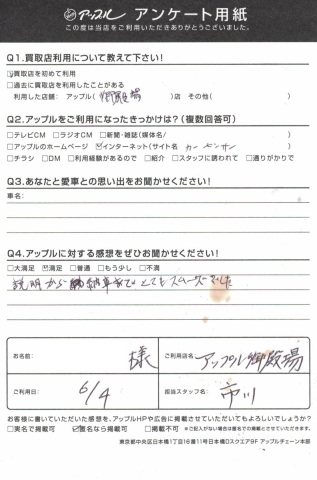 アップル アンケート用紙
この度は当店をご利用いただきありがとうございました。
Q1.買取店利用について教えて下さい!
☑買取店を初めて利用
□過去に買取店を利用したことがある
利用した店舗: アップル( 御殿場 )店 その他( )
Q2.アップルをご利用になったきっかけは?(複数回答可)
□テレビCM □ラジオCM □新聞・雑誌(媒体名/ )
□アップルのホームページ ☑インターネット(サイト名 カーセンサー )
□チラシ □DM □利用経験があるので □紹介 □スタッフに誘われて □通りがかりで
Q3.あなたと愛車との思い出をお聞かせください!
車名:
Q4.アップルに対する感想をぜひお聞かせください!
□大満足 ☑満足 □普通 □もう少し □不満
説明から納車までとてもスムーズでした
お名前: 様
ご利用店名: アップル御殿場
ご利用日: 6/4
担当スタッフ名: 市川
お客様に書いていただいた感想を、アップルHPや広告に掲載させていただいてもよろしいでしょうか?
□実名で掲載可 ☑匿名なら掲載可 □掲載不可 ※ご記入がない場合は匿名での掲載とさせていただきます。
東京都中央区日本橋1丁目16番11号日本橋Dスクエア9F アップルチェーン本部